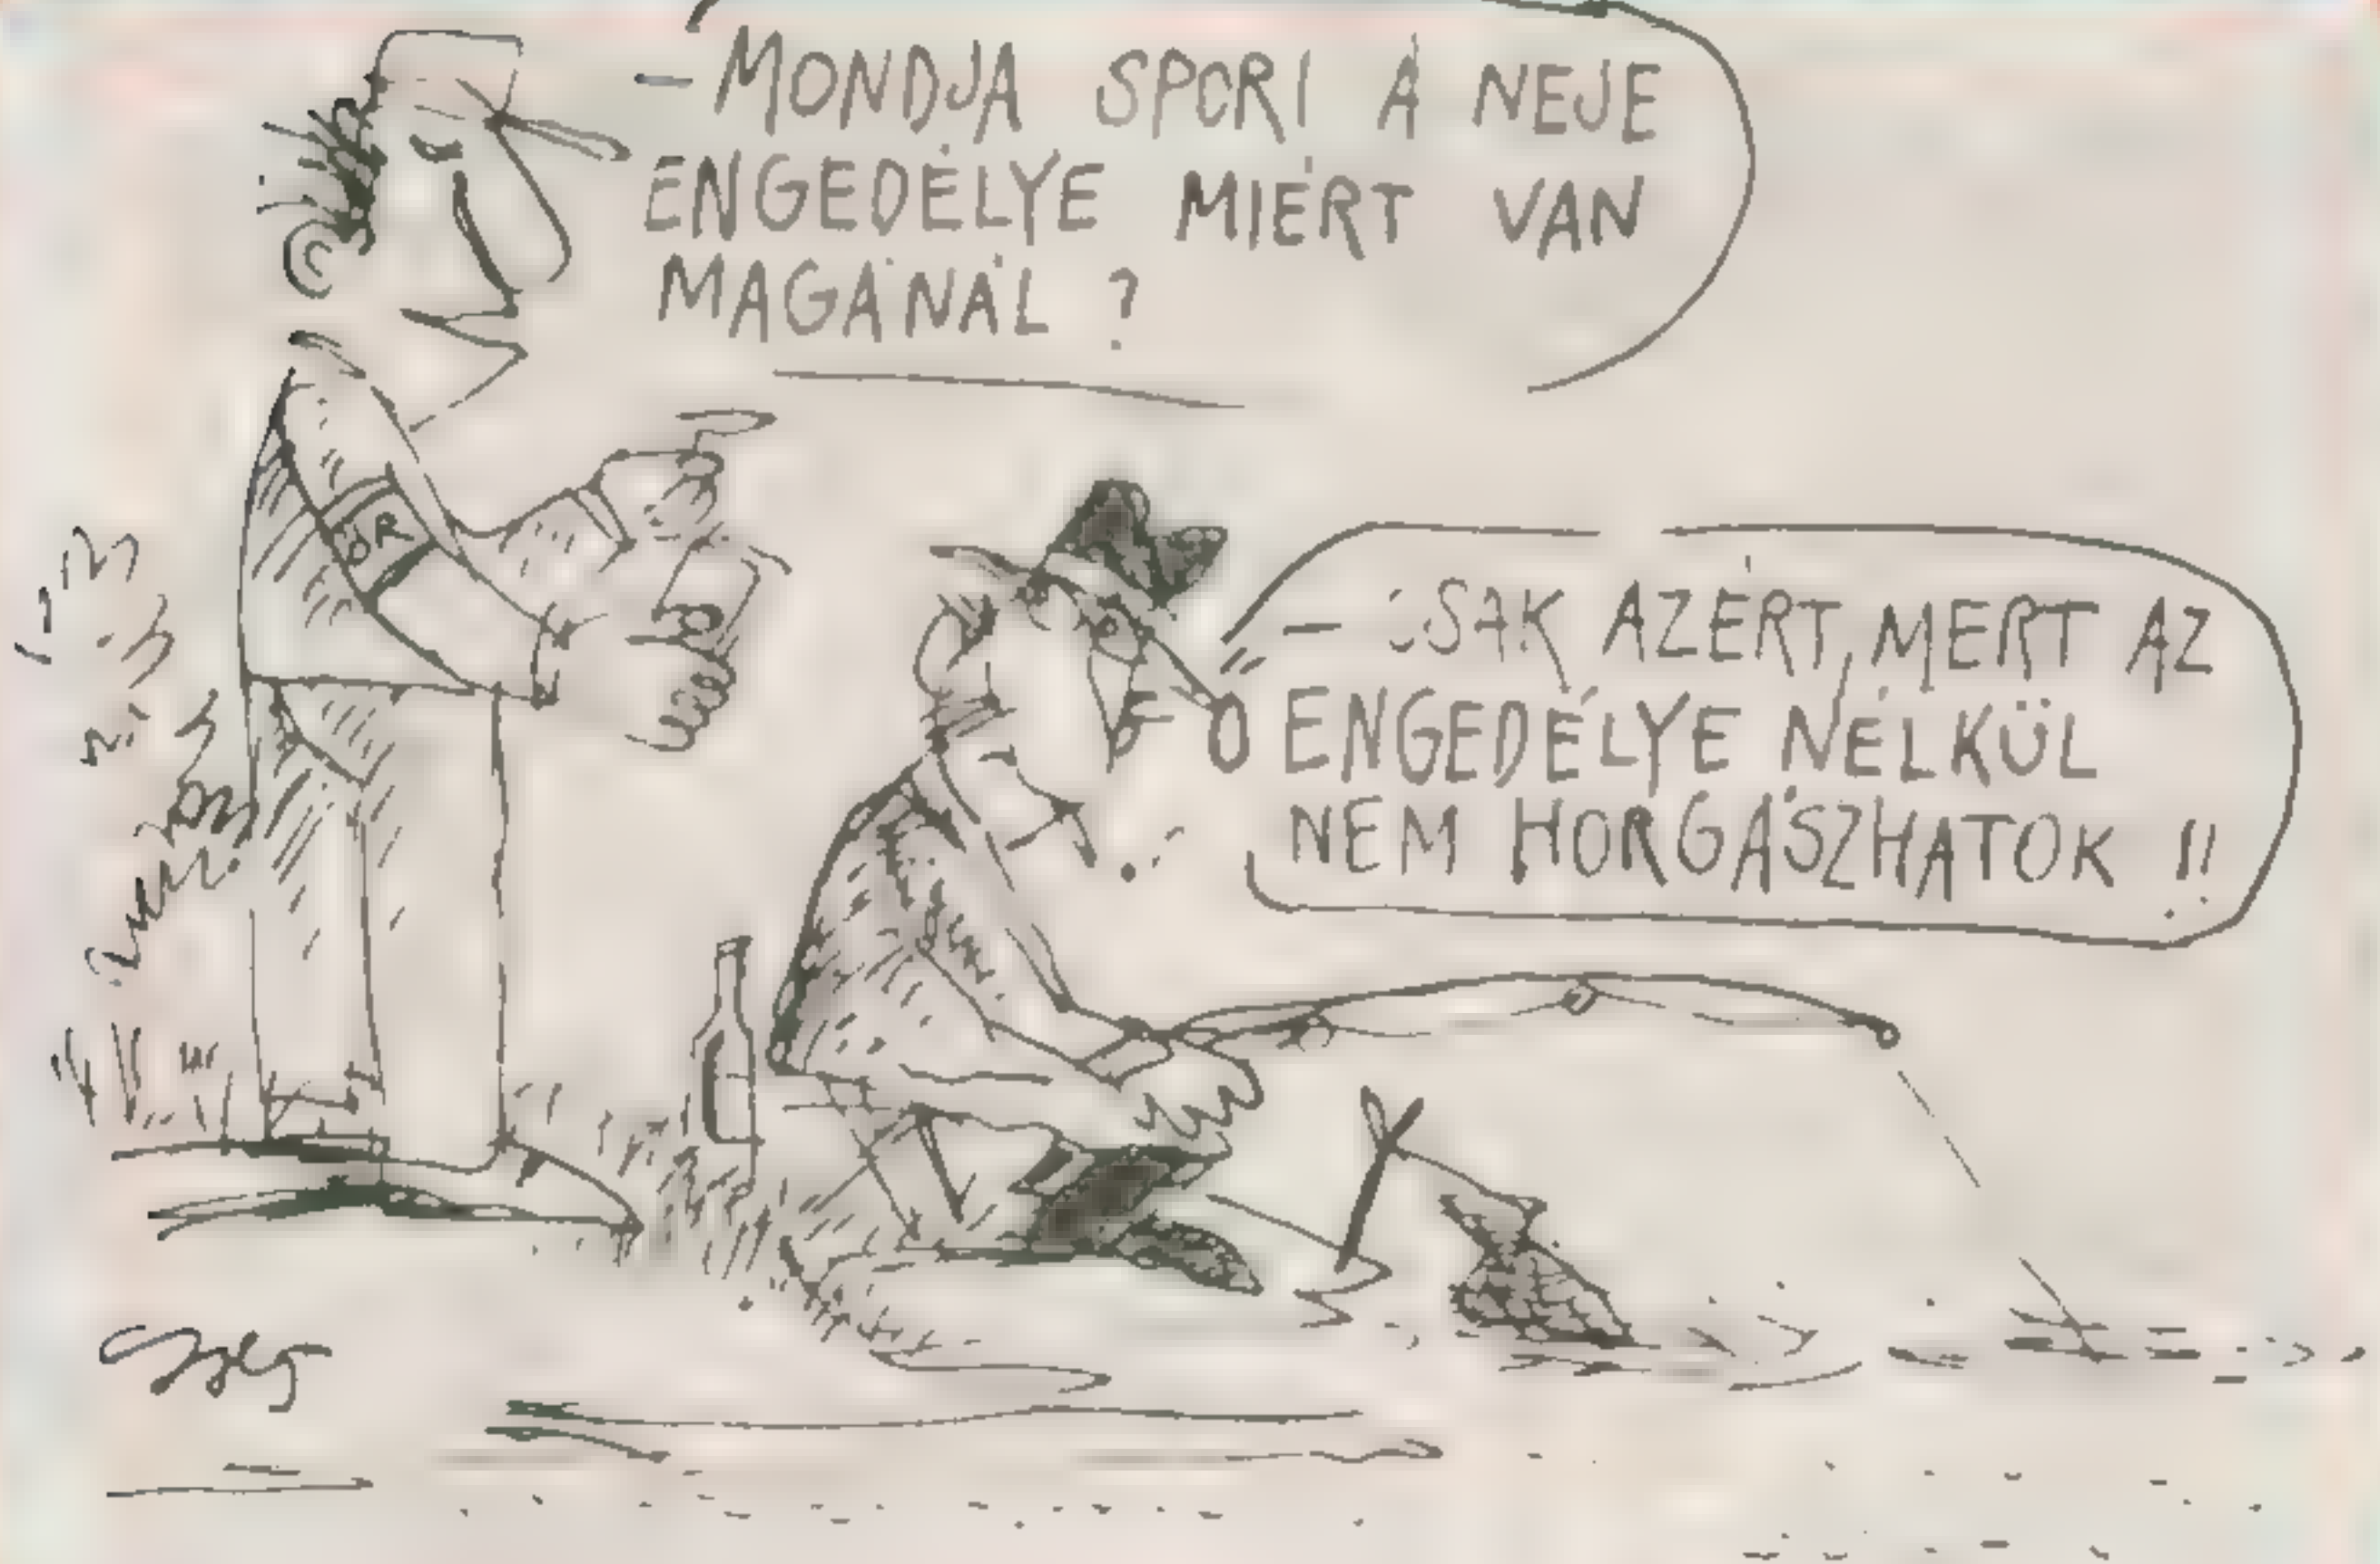 - MONDJA SPORI A NEJE
ENGEDÉLYE MIÉRT VAN
MAGÁNÁL ?
ŐR
- CSAK AZÉRT, MERT AZ
ENGEDÉLYE NÉLKÜL
NEM HORGÁSZHATOK !!